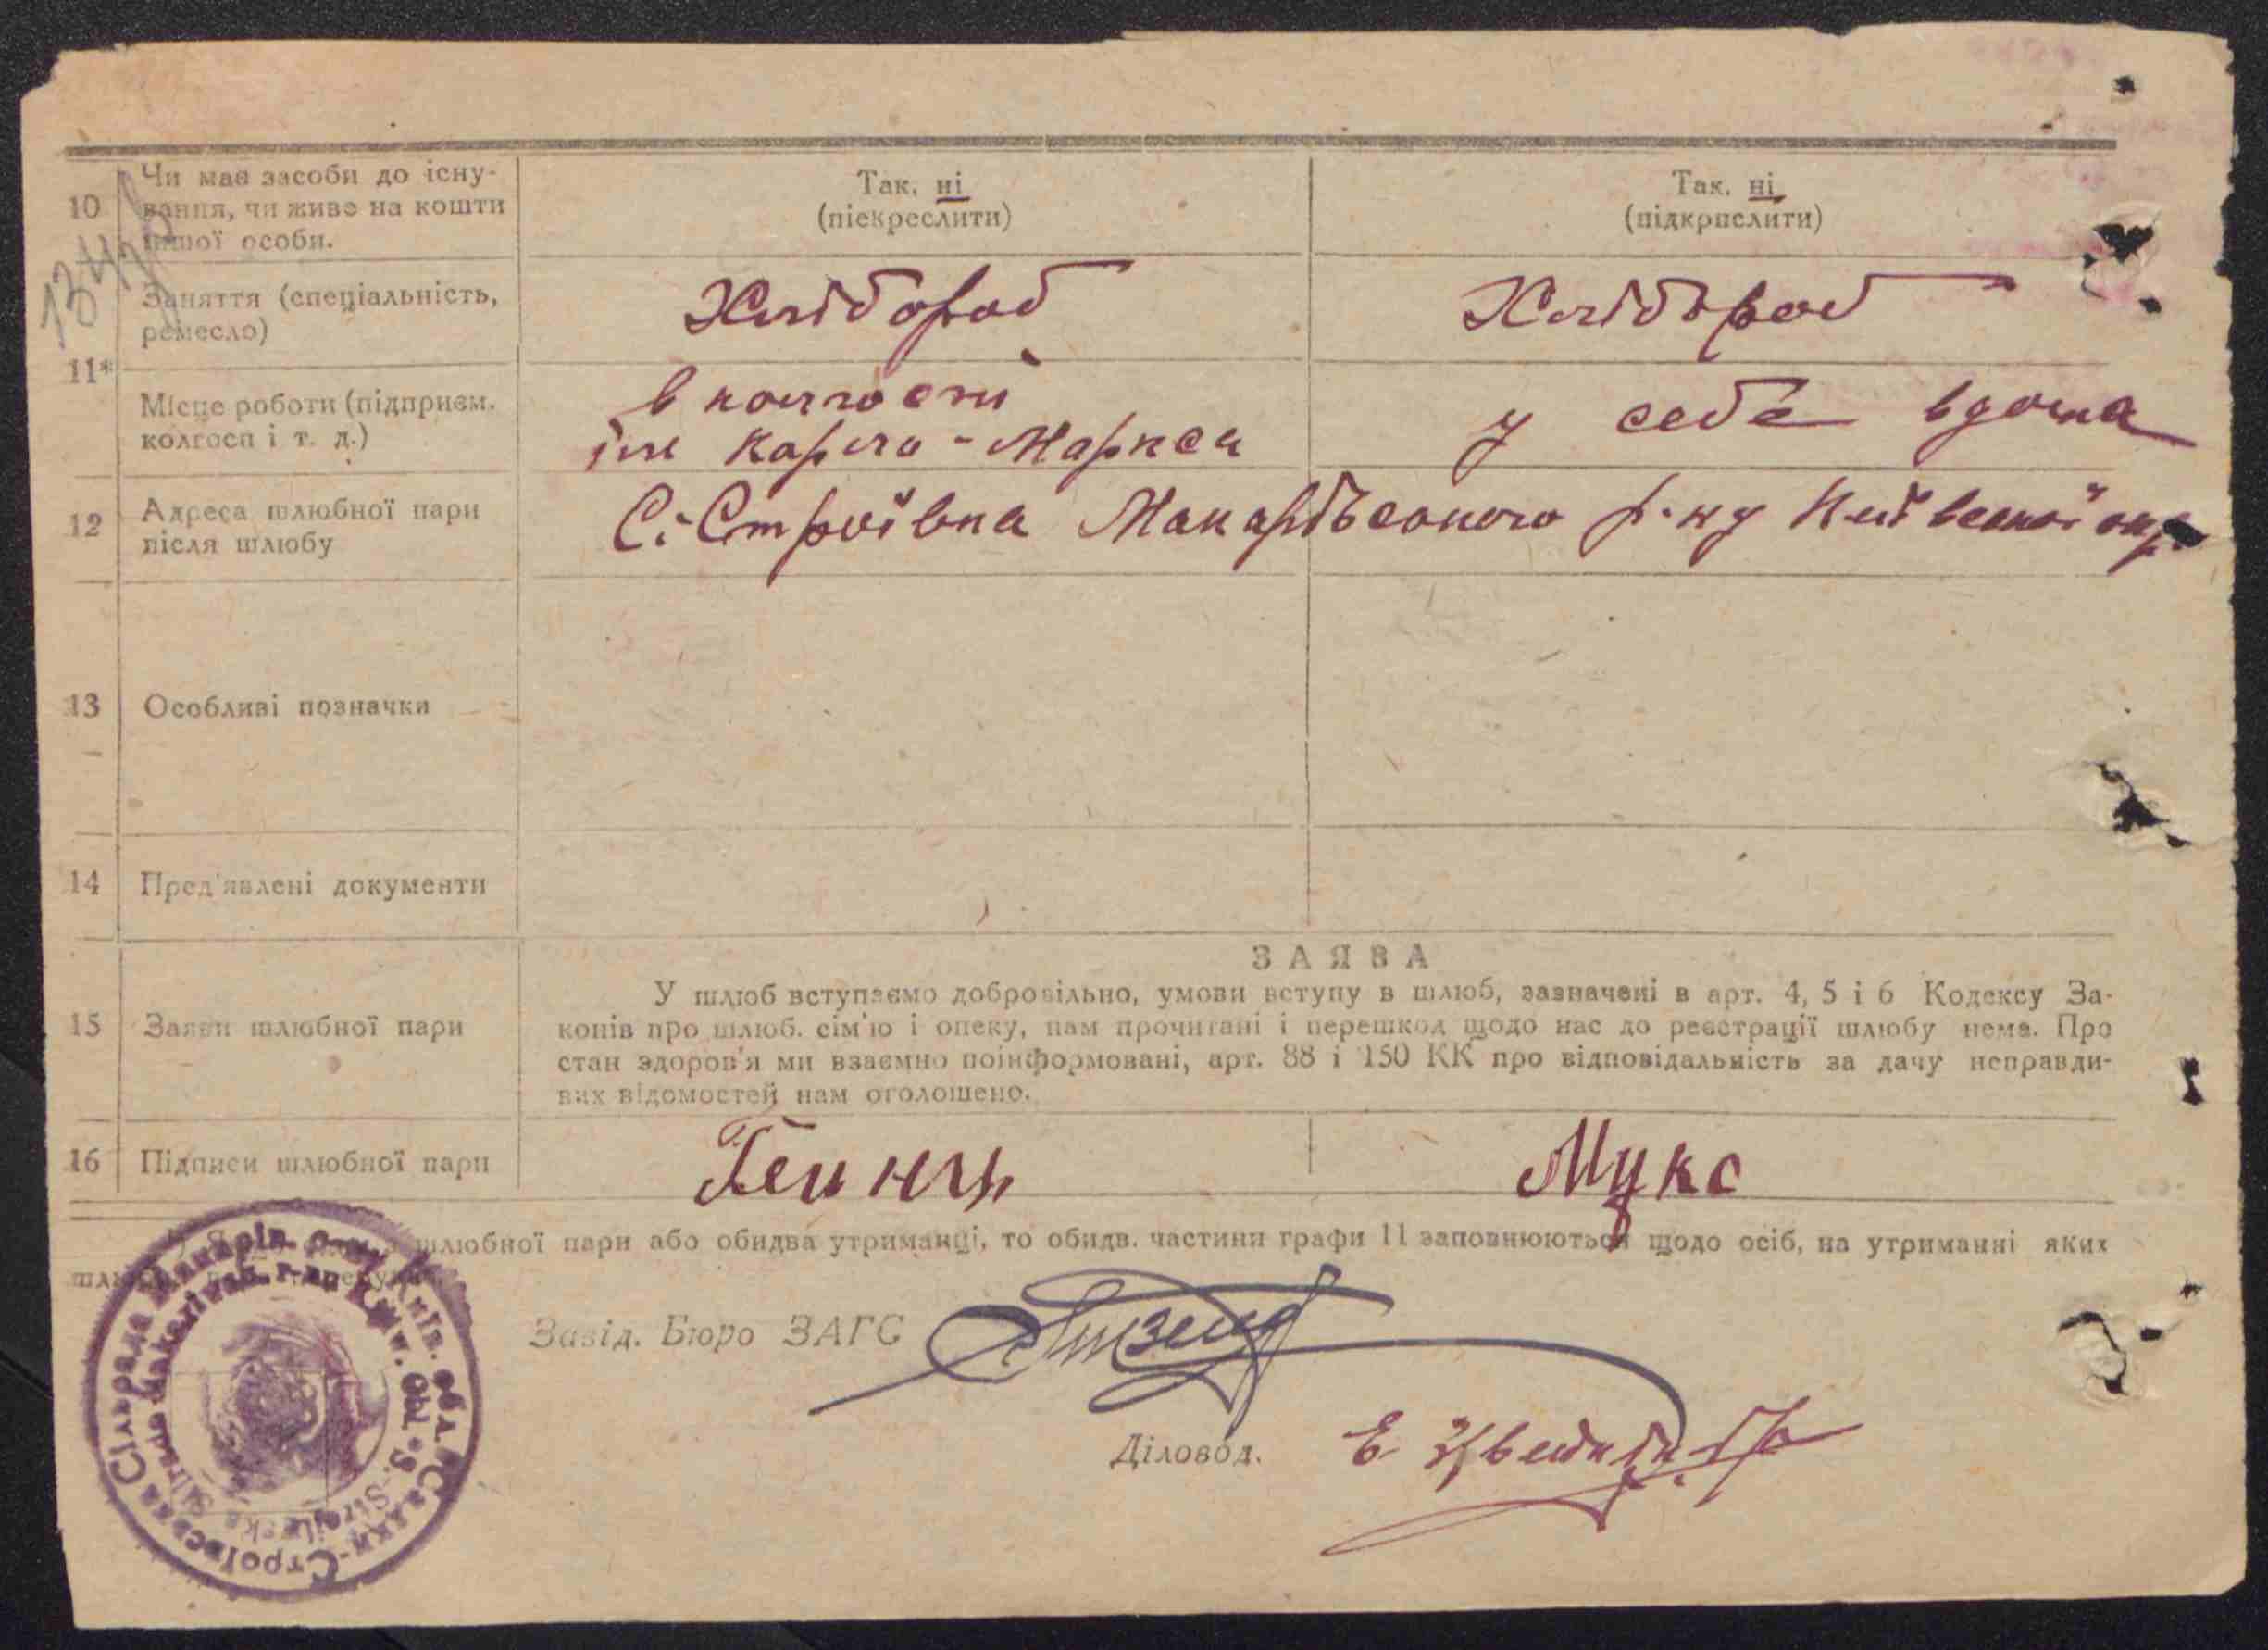 10 Чи має засоби до існу-
вання, чи живе на кошти
іншої особи.
Так, ні
(піекреслити)
Так, ні
(підкрпслити)
134
11*
Заняття (спеціальність,
ремесло)
Хлібороб
Хлібороб
Місце роботи (підприєм.
колгосп і т. д.)
в колгоспі
ім Карло-Маркса
у себе вдома
12 Адреса шлюбної пари
після шлюбу
С. Строївка Макарівського р-ну Київської окр.
13 Особливі позначки
14 Пред'явлені документи
15 Заяви шлюбної пари
ЗАЯВА
У шлюб вступаємо добровільно, умови вступу в шлюб, зазначені в арт. 4, 5 і 6 Кодексу За-
конів про шлюб. сім'ю і опеку, нам прочитані і перешкод щодо нас до реєстрації шлюбу нема. Про
стан здоров'я ми взаємно поінформовані, арт. 88 і 150 КК про відповідальність за дачу неправди-
вих відомостей нам оголошено.
16 Підписи шлюбної пари
Мукс
шлюбної пари або обидва утриманці, то обидв. частини графи 11 заповнюються щодо осіб, на утриманні яких
Завід. Бюро ЗАГС
Діловод.
Строївська Сільрада Макарів. р-ну, Київ. обл. * С. Садки-
Strojiwska Silrada Makariwsk. r-nu Kyiw. Obl * S.